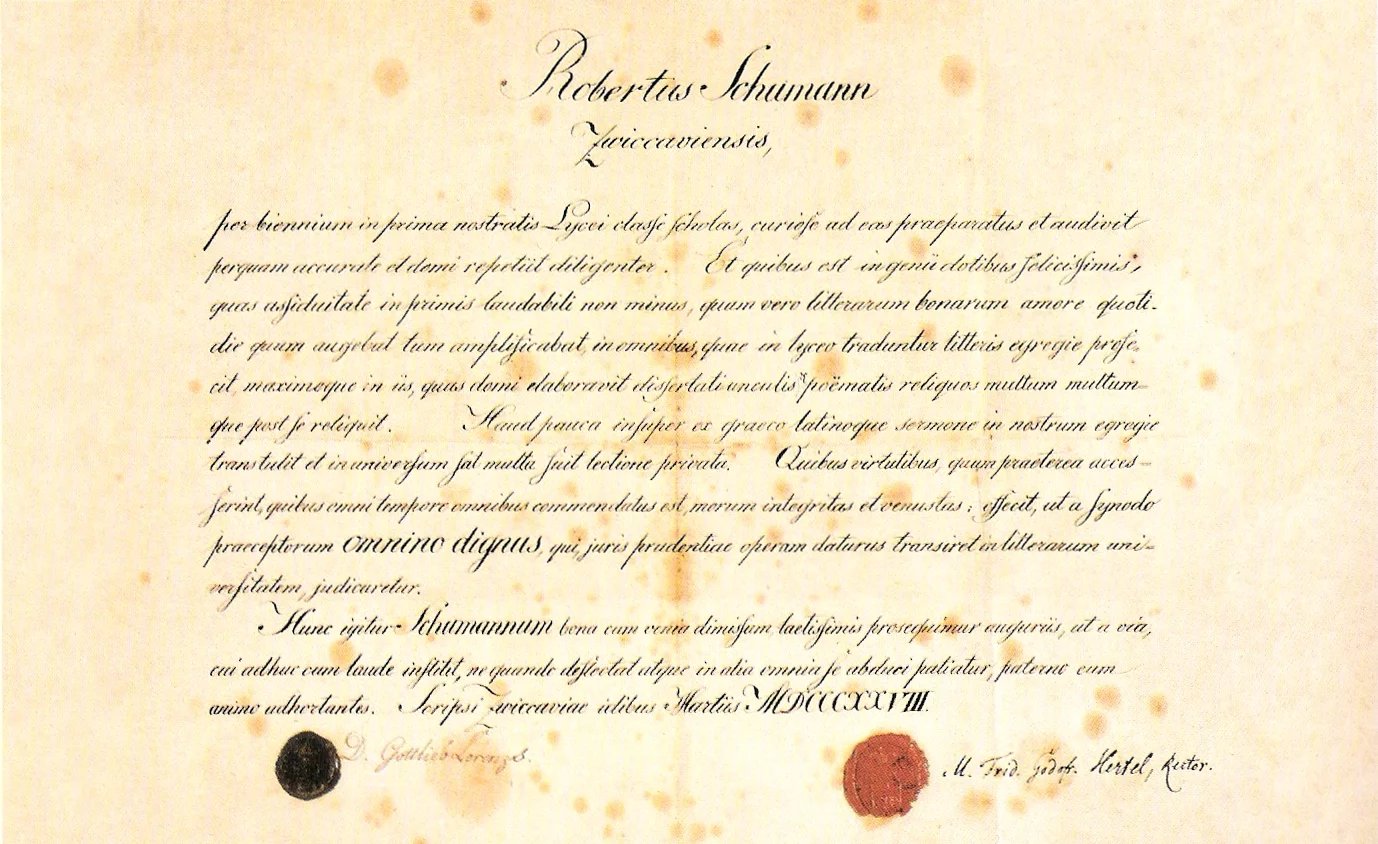 Robertus Schumann
Zwiccaviensis,
per biennium in prima nostratis Lycei classe scholas, curiose ad eas praeparatus et audivit
perquam accurate et domi repetiit diligenter. Et quibus est ingenii dotibus felicissimis,
quas assiduitate in primis laudabili non minus, quam vero litterarum bonarum amore quoti-
die quum augebat tum amplificabat, in omnibus, quae in lyceo traduntur litteris egregie profe-
cit, maximeque in iis, quas domi elaboravit dissertatiunculis poëmatis reliquos multum multum-
que post se reliquit. Haud pauca insuper ex graeco latinoque sermone in nostrum egregie
transtulit et in universum sat multa fuit lectione privata. Quibus virtutibus, quum praeterea acces-
serint, quibus omni tempore omnibus commendatus est, morum integritas et venustas; effecit, ut a synodo
praeceptorum omnino dignus, qui, juris prudentiae operam daturus transiret in litterarum uni-
versitatem, judicaretur.
Hunc igitur Schumannum bona cum venia dimissum laetissimis prosequimur auguriis, ut a via,
cui adhuc cum laude institit, ne quando deflectat atque in alia omnia se abduci patiatur, paterno eum
animo adhortantes. Scripsi Zwiccaviae idibus Martiis MDCCCXXVIII.
D. Gottlieb Lorenz
M. Frid. Godofr. Hertel, Rector.